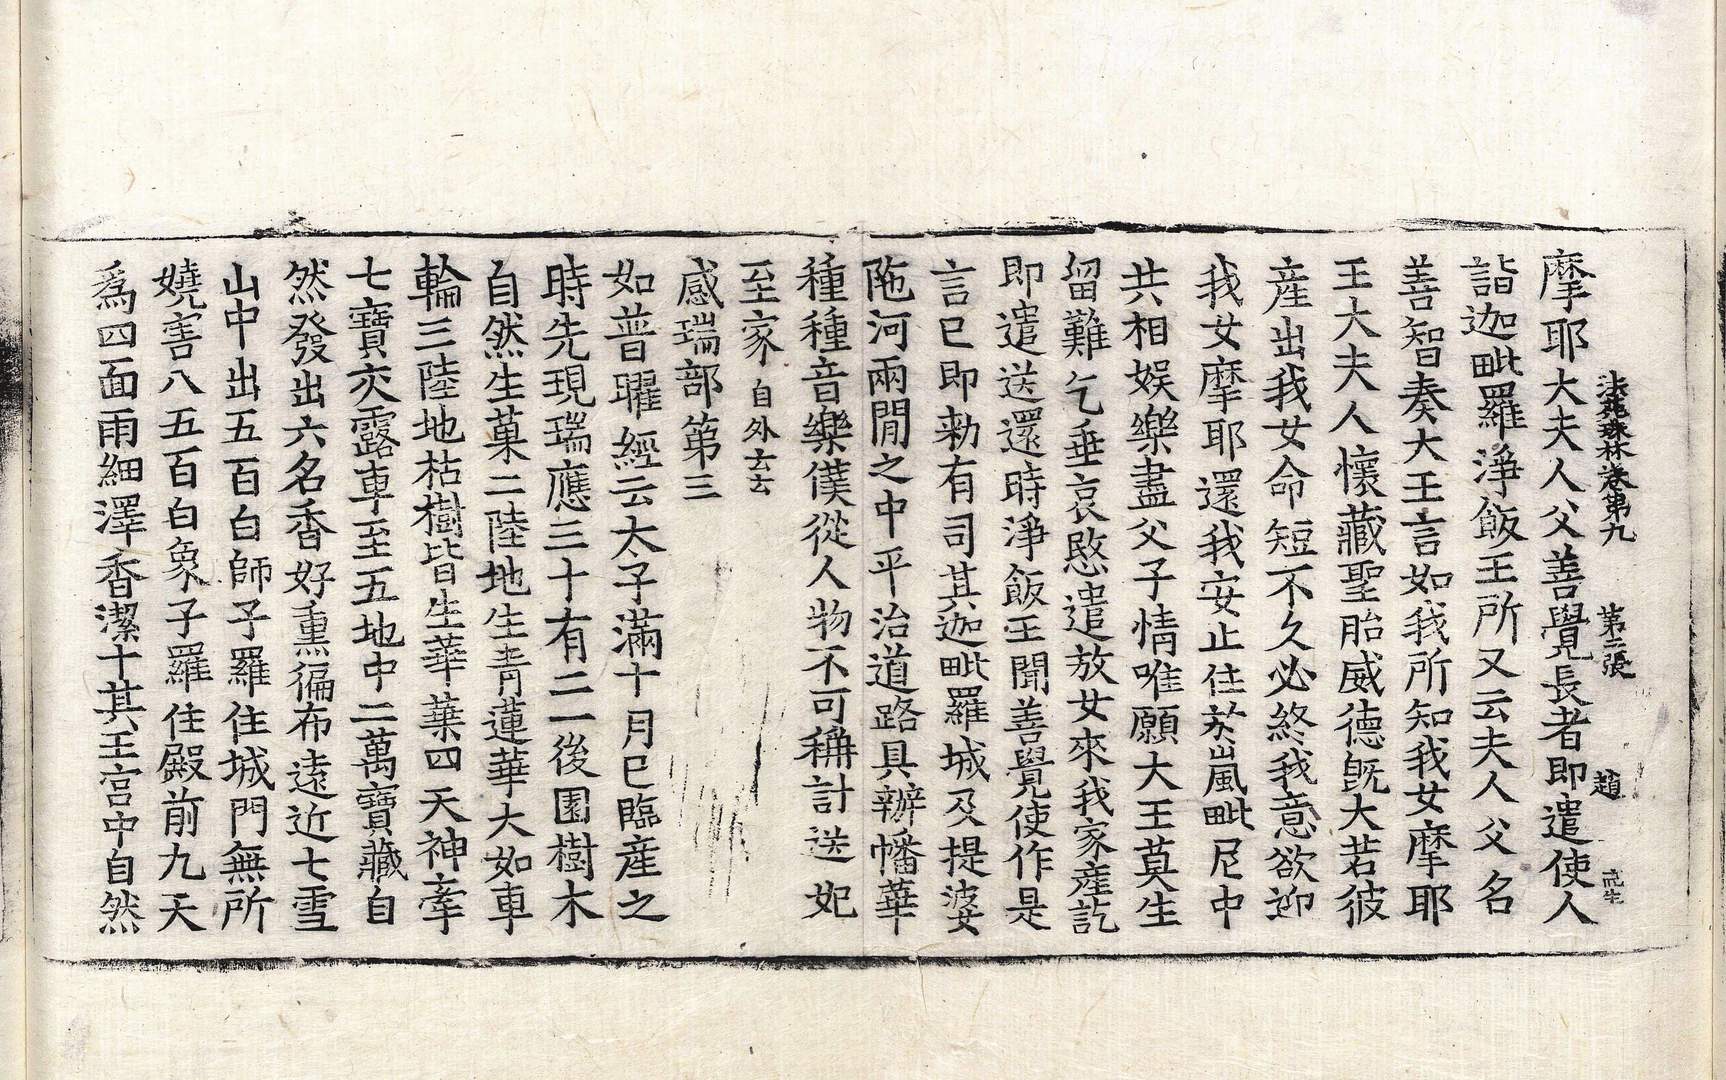 法苑珠林卷第九 第二張 趙
摩耶大夫人父善覺長者即遣使人
詣迦毗羅淨飯王所又云夫人父名
善智奏大王言如我所知我女摩耶
王大夫人懷藏聖胎威德旣大若彼
産出我女命短不久必終我意欲迎
我女摩耶還我安止住於嵐毗尼中
共相娛樂盡父子情唯願大王莫生
留難乞垂哀愍遣放女來我家產訖
即遣送還時淨飯王聞善覺使作是
言已即勑有司其迦毗羅城及提婆
陁河兩閒之中平治道路具辦幡華
種種音樂僕從人物不可稱計送妃
至家自外云云
感瑞部第三
如普曜經云太子滿十月已臨産之
時先現瑞應三十有二一後園樹木
自然生菓二陸地生青蓮華大如車
輪三陸地枯樹皆生華葉四天神牽
七寶交露車至五地中二萬寶藏自
然發出六名香好熏徧布遠近七雪
山中出五百白師子羅住城門無所
嬈害八五百白象子羅住殿前九天
爲四面雨細澤香潔十其王宮中自然